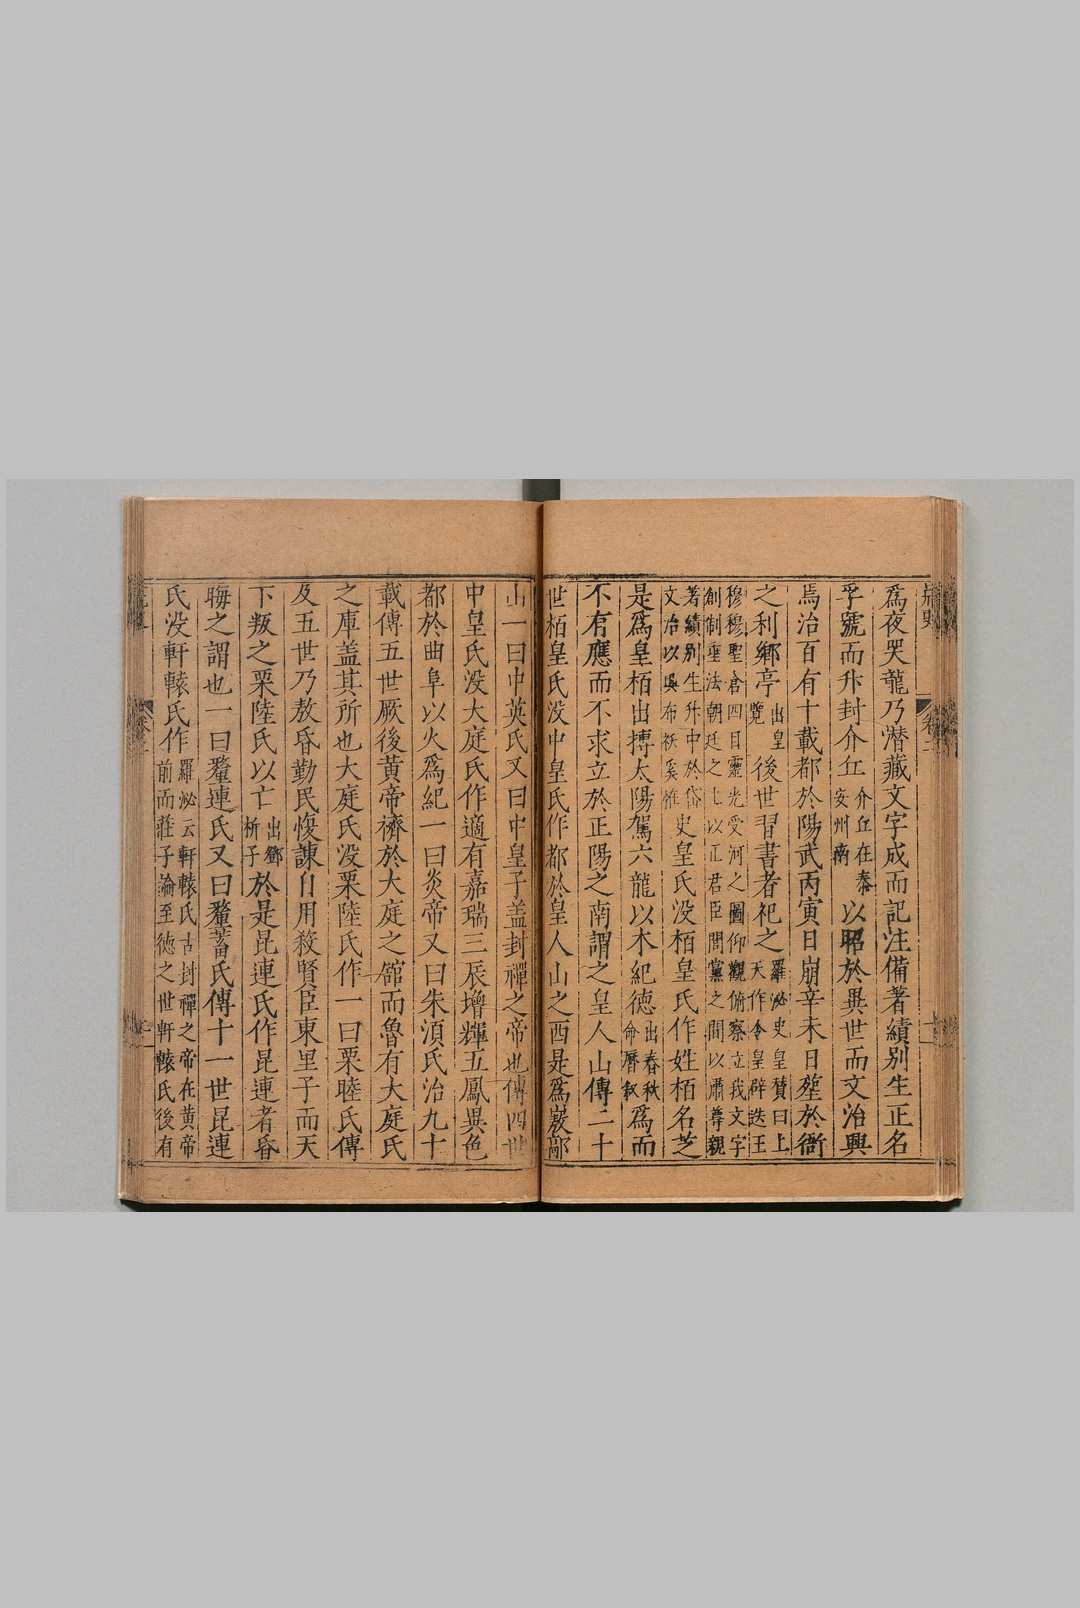 卷二
爲夜哭龍乃潛藏文字成而記注備著績别生正名
孚號而升封介丘介丘在泰安州南以昭於異世而文治興
焉治百有十載都於陽武丙寅日崩辛未日塟於衙
之利鄉亭出皇覽後世習書者祀之羅泌史皇贊曰上天作令皇辟迭王
穆穆聖倉四目靈光受河之圖仰觀俯察立我文字
創制垂法朝廷之上以正君臣閭黨之間以肅尊親
著績别生升中於岱
文治以興布袄奚惟史皇氏没栢皇氏作姓栢名芝
是爲皇栢出搏太陽駕六龍以木紀德出春秋命曆叙爲而
不有應而不求立於正陽之南謂之皇人山傳二十
世栢皇氏没中皇氏作都於皇人山之西是爲
山一曰中英氏又曰中皇子盖封禪之帝也傳四世
中皇氏没大庭氏作適有嘉瑞三辰增輝五鳳異色
都於曲阜以火爲紀一曰炎帝又曰朱湏氏治九十
載傳五世厥後黄帝禬於大庭之舘而魯有大庭氏
之庫盖其所也大庭氏没栗陸氏作一曰栗睦氏傳
及五世乃敖昏勤民愎諫自用殺賢臣東里子而天
下叛之栗陸氏以亡出鄧析子於是昆連氏作昆連者昏
晦之謂也一曰釐連氏又曰釐蓄氏傳十一世昆連
氏没軒轅氏作羅泌云軒轅氏古封禪之帝在黄帝前而莊子論至徳之世軒轅氏後有